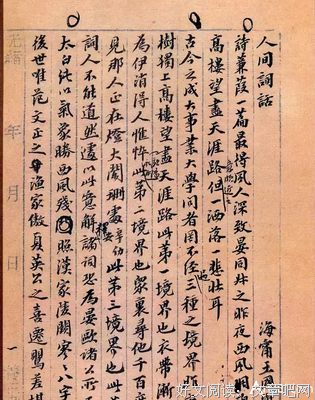 人間詞話 海甯王
詩蒹葭一篇最得風人深致晏同叔之昨夜西風凋
高樓望盡天涯路意頗近之但一洒落一悲壯耳
古今之成大事業大學問者罔不經三種之境界昨
樹獨上高樓望盡天涯路此第一境界也衣帶漸
為伊消得人憔悴此第二境界也衆裏尋他千百度
見那人正在燈火闌珊處辛幼安此第三境界也此
詞人不能道然遽以此意解諸詞恐為晏歐諸公所不
太白純以氣象勝西風殘照漢家陵闕寥寥八字
後世唯范文正之漁家傲夏英公之喜遷鶯差堪
光緒 年 月 日 一
好文阅读 文章吧网